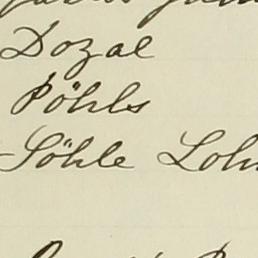 Dozal
Pöhls
Söhle Loh